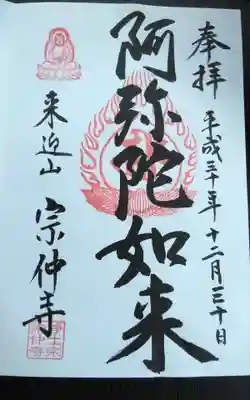 奉拝
平成三十年十二月三十日
阿弥陀如来
来迎山
宗仲寺
浄土宗
宗仲寺